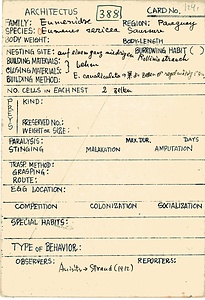 ARCHITECTUS 388 CARD NO.
FAMILY: Eumenidae REGION: Paraguay
SPECIES: Eumenes sericea Saussure
BODY WEIGHT: BODY-LENGTH
NESTING SITE: auf einem ganz niedrigen BURROWING HABIT ( )
BUILDING MATERIALS: } Lehm
CLOSING MATERIALS:
BUILDING METHOD: E. canaliculata
NO. CELLS IN EACH NEST 2 Zellen
PREYS KIND:
PRESERVED NO.:
WEIGHT OR SIZE:
PARALYSIS: MAX. DUR. DAYS
STINGING MALAXATION AMPUTATION
TRASP. METHOD:
GRASPING:
ROUTE:
EGG LOCATION:
COMPETITION COLONIZATION SOCIALIZATION
SPECIAL HABITS:
TYPE OF BEHAVIOR:
OBSERVERS: REPORTERS:
Anisits → Strand (1910)